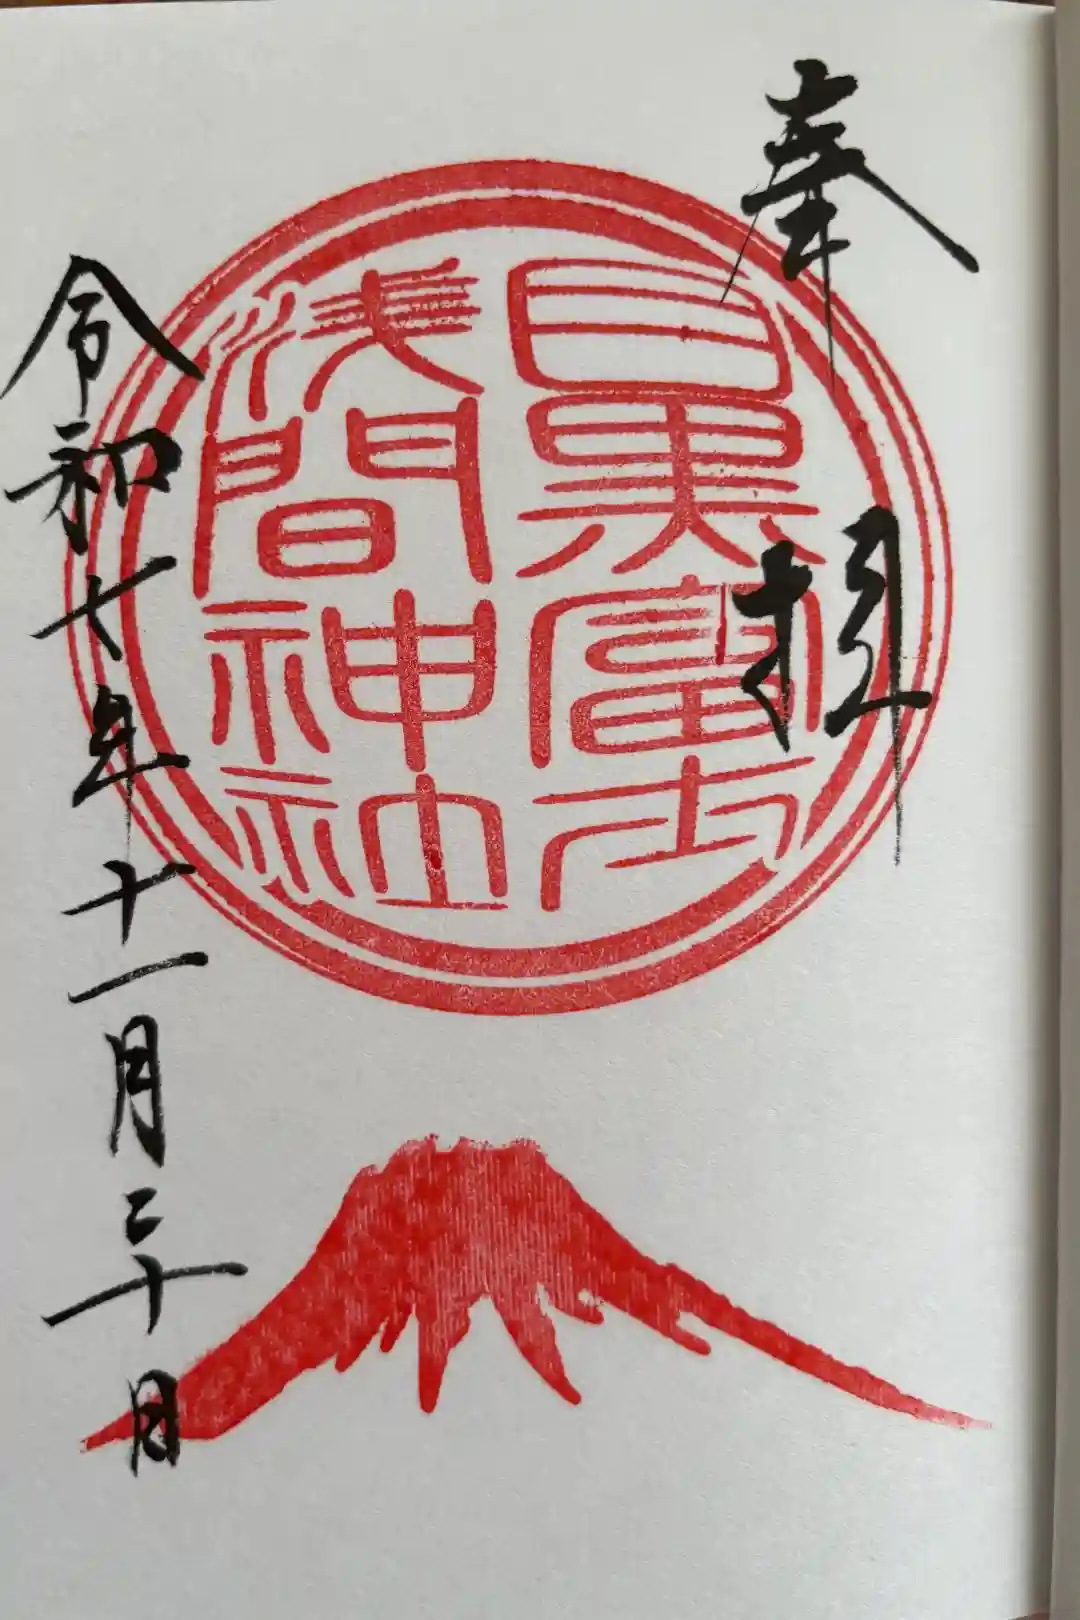 奉拝
目黒富士
浅間神社
令和七年十一月二十日